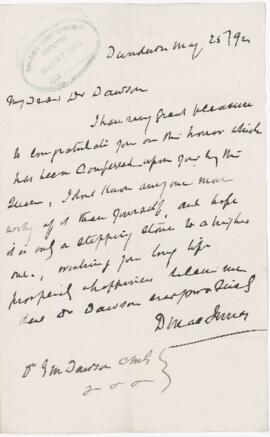 MAY 27 1892
Dundurn May 25/92
My Dear Dr Dawson
I have very great pleasure
to congratulate you on the honor which
has been Conferred upon you by the
Queen, I dont know any one more
worthy of it than yourself, and hope
it is only a stepping stone to a higher
one, wishing you long life
prosperity happiness believe me
dear Dr Dawson
D MacInnes
Dr G M Dawson CMG